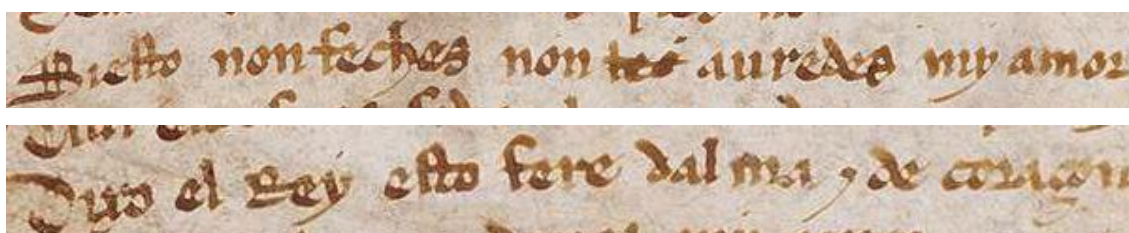 Si esto non feches non auredes my amor
Dixo el Rey esto fere dalma ⁊ de coraçon